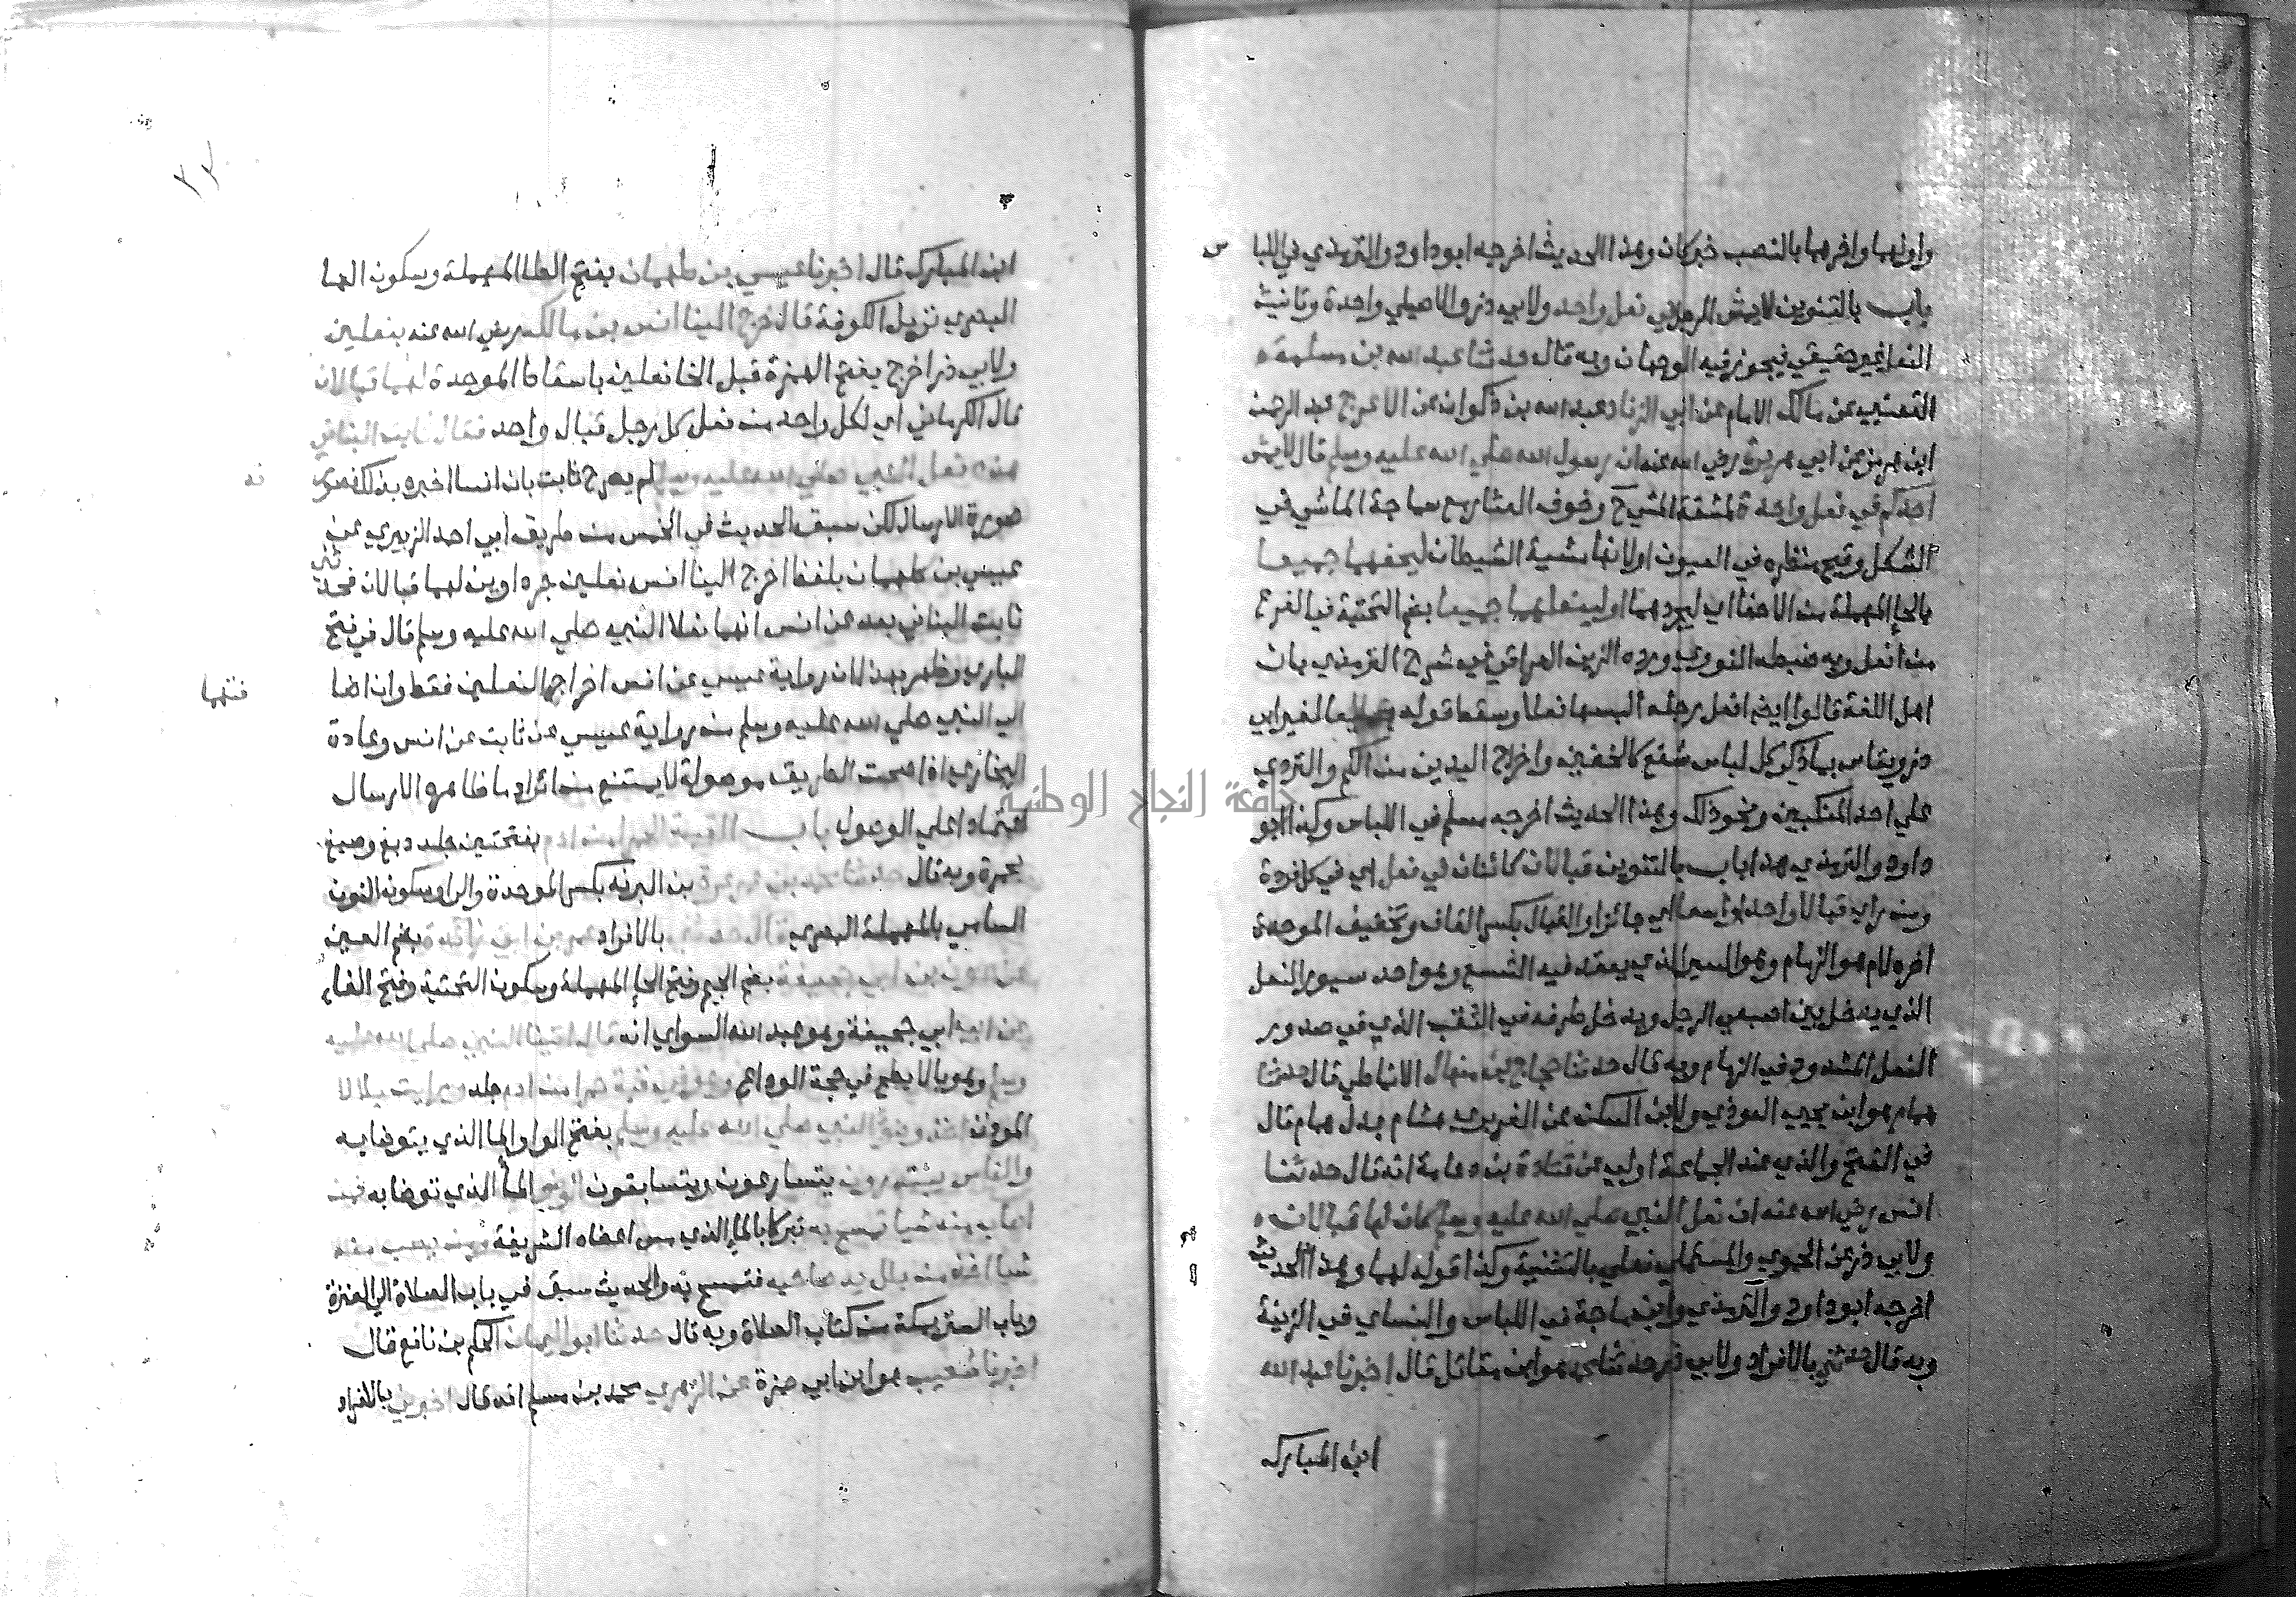 واولهما واخرهما بالنصب خبر كان وهذا الحديث اخرجه ابو داود والترمذي في اللبا
س
باب بالتنوين لا يمش الرجل في نعل واحد ولابي ذر والاصيلي واحدة وتانيث
النعل غير حقيقي فيجوز فيه الوجهان وبه قال حدثنا عبد الله بن مسلمة
القعنبي عن مالك الامام عن ابي الزناد عبد الله بن ذكوان عن الاعرج عبد الرحمن
ابن هرمز عن ابي هريرة رضي الله عنه ان رسول الله صلي الله عليه وسلم قال لا يمش
احدكم في نعل واحدة لمشقة المشي ح وخوف العثار مع سماجة الماشي في
الشكل وقبح منظره في العيون او لانها مشية الشيطان ليحفهما جميعا
بالحا المهملة من الاحفا اي ليجردهما او لينعلهما جميعا بضم التحتية في الفرع
من انعل وبه ضبطه النووي ورده الزين العراقي في شرح الترمذي بان
اهل اللغة قالوا ايضا انعل رجله البسها نعلا وسقط قوله جميعا لغير ابي
ذر ويقاس بما ذكر كل لباس شفع كالخفين واخراج اليدين من الكم والتردي
علي احد المنكبين ونحو ذلك وهذا الحديث اخرجه مسلم في اللباس وكذا ابو
داود والترمذي هذا باب بالتنوين قبالان كائنان في نعل اي في كل فردة
ومن راي قبالا واحدا واسعا اي جائزا والقبال بكسر القاف وتخفيف الموحدة
اخره لام هو الزمام وهو السير الذي يعقد فيه الشسع وهو احد سيور النعل
الذي يدخل بين اصبعي الرجل ويدخل طرفه في الثقب الذي في صدور
النعل المشدود في الزمام وبه قال حدثنا حجاج بن منهال الانماطي قال حدثنا
همام هو ابن يحيي العوذي ولابن السكن عن الفربري هشام بدل همام قال
في الفتح والذي عند الجماعة اولي عن قتادة بن دعامة انه قال حدثنا
انس رضي الله عنه ان نعل النبي صلي الله عليه وسلم كان لها قبالان
ولابي ذر عن الحموي والمستملي نعلي بالتثنية وكذا قوله لهما وهذا الحديث
اخرجه ابو داود والترمذي وابن ماجة في اللباس والنساي في الزينة
وبه قال حدثني بالافراد ولابي ذر حدثنا محمد هو ابن مقاتل قال اخبرنا عبد الله
ابن المبارك
٣٣
ابن المبارك قال اخبرنا عيسي بن طهمان بفتح الطا المهملة وسكون الها
البصري نزيل الكوفة قال خرج الينا انس بن مالك رضي الله عنه بنعلين
ولابي ذر اخرج بفتح الهمزة قبل الخا نعلين باسقاط الموحدة لهما قبالان
قال الكرماني اي لكل واحد من نعل كل رجل قبال واحد فقال ثابت البناني
هذه نعل النبي صلي الله عليه وسلم لم يصرح ثابت بان انسا اخبره بذلك فهو
صورة الارسال لكن سبق الحديث في الخمس من طريق ابي احمد الزبيري عن
عيسي بن طهمان بلفظ اخرج الينا انس نعلين جرداوين لهما قبالان فحدثني
ثابت البناني بعد عن انس انهما نعلا النبي صلي الله عليه وسلم قال في فتح
الباري وظهر بهذا ان رواية عيسي عن انس اخراجه النعلين فقط وان اضا
فتهما
الي النبي صلي الله عليه وسلم من رواية عيسي عن ثابت عن انس وعادة
البخاري اذا صحت الطريق موصولة لا يمتنع من ايراد ما ظاهره الارسال
اعتمادا علي الوصول باب القبة الحمرا من ادم بفتحتين جلد دبغ وصبغ
بحمرة وبه قال حدثنا محمد بن عرعرة بن البرند بكسر الموحدة والرا وسكون النون
السامي بالمهملة البصري قال حدثني بالافراد عمر بن ابي زائدة بضم العين
عن عون بن ابي جحيفة بضم الجيم وفتح الحا المهملة وسكون التحتية وفتح الفا
عن ابيه ابي جحيفة وهو عبد الله السواي انه قال اتينا النبي صلي الله عليه
وسلم وهو بالابطح في حجة الوداع وهو في قبة حمرا من ادم جلد ورايت بلالا
الموذن اخذ وضو النبي صلي الله عليه وسلم بفتح الواو الما الذي يتوضا به
والناس يبتدرون يتسارعون ويتسابقون الوضو الما الذي توضا به فمن
اصاب منه شيا تمسح به تبركا بالما الذي مس اعضاه الشريفة ومن لم يصب منه
شيا اخذ من بلل يد صاحبه فتمسح به والحديث سبق في باب الصلاة الي العنزة
وباب السترة بمكة من كتاب الصلاة وبه قال حدثنا ابو اليمان الحكم بن نافع قال
اخبرنا شعيب هو ابن ابي حمزة عن الزهري محمد بن مسلم انه قال اخبرني بالافراد
جامعة النجاح الوطنية